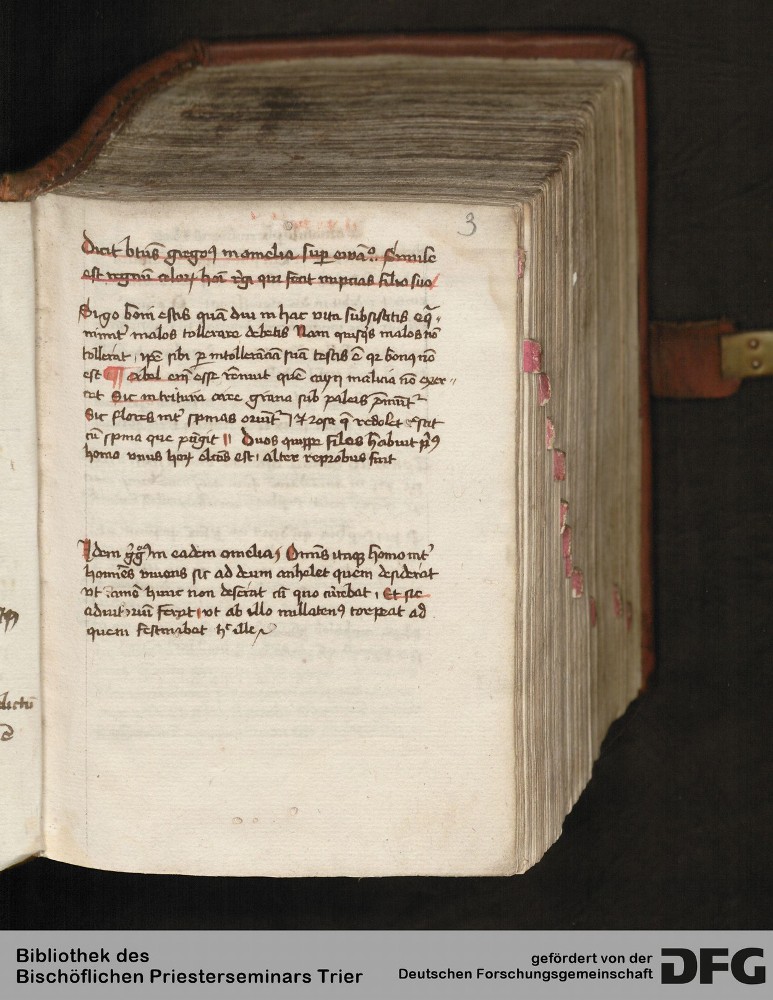 3
Dicit btūs gregoꝯ in omelia sup ewāᵒ. Simile
est regnū celoꝝ hōi rēgi qui fecit nuptias filio suo
Si go boni estis quādiu in hac vita subsistitis eqͣ-
nimit malos tollerare debetis Nam quisqͥs malos nō
tollerat ipē sibi ꝑ intollerāciā suā testis ē qꝛ bonꝯ nō
est ¶ abel em̄ esse rēnuit quē cayn malicia nō exer-
cet Sic in tritura aree grana sub paleis p̄munt᷑
Sic flores int spinas oriunt᷑ et rosa q̄ redolet crescit
cū spina que pūgit Duos quippe filios habuit pͥꝯ
homo vnus hoꝝ electꝯ est alter reprobus fuit
Idem gͥgͦ in eadem omelia Omīs itaqꝫ homo int
homīes viuens sic ad deum anhelet quem desiderat
vt tamē hunc non deserat cū quo currebat Et sic
adiutoriū ferat vt ab illo nullatenꝯ torpeat ad
quem festinabat hᶜ ille
dictū
Bibliothek des
Bischöflichen Priesterseminars Trier
gefördert von der
Deutschen Forschungsgemeinschaft
DFG